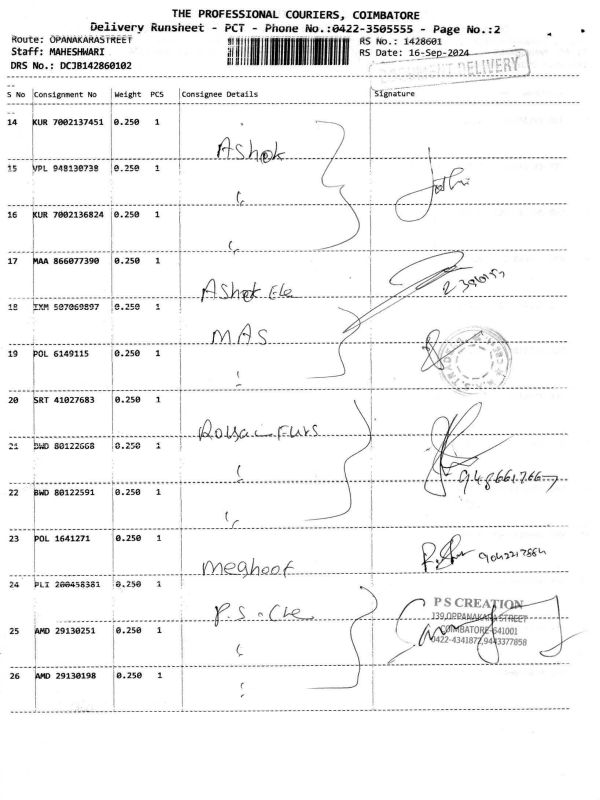 THE PROFESSIONAL COURIERS, COIMBATORE
Delivery Runsheet - PCT - Phone No.:0422-3505555 - Page No.:2
Route: OPANAKARASTREET
RS No.: 1428601
Staff: MAHESHWARI
RS Date: 16-Sep-2024
DRS No.: DCJB142860102
DELIVERY
S No Consignment No Weight PCS Consignee Details Signature
14 KUR 7002137451 0.250 1
Ashok
15 VPL 948130738 0.250 1
16 KUR 7002136824 0.250 1
17 MAA 866077390 0.250 1
Ashok Ele
18 IXM 507069897 0.250 1
MAS
19 POL 6149115 0.250 1
20 SRT 41027683 0.250 1
21 BWD 80122668 0.250 1
22 BWD 80122591 0.250 1
23 POL 1641271 0.250 1
9042217864
24 PLI 200458381 0.250 1
P.S. Cre
P S CREATION
139,OPPANAKARA STREET
25 AMD 29130251 0.250 1
COIMBATORE-641001
0422-4341872,9443377858
26 AMD 29130198 0.250 1